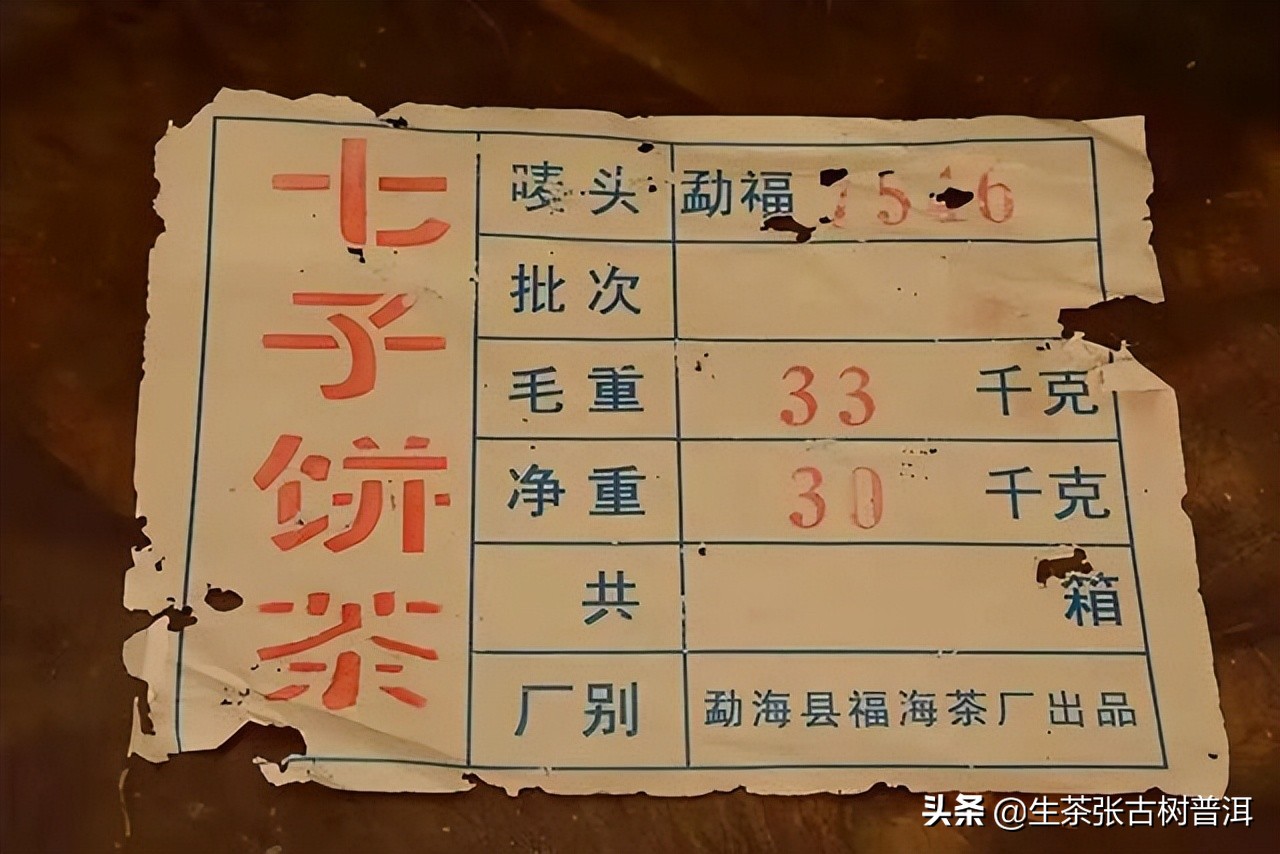 七子饼茶
唛头 勐福 7546
批次
毛重 33 千克
净重 30 千克
共 箱
厂别 勐海县福海茶厂出品
头条 @生茶张古树普洱